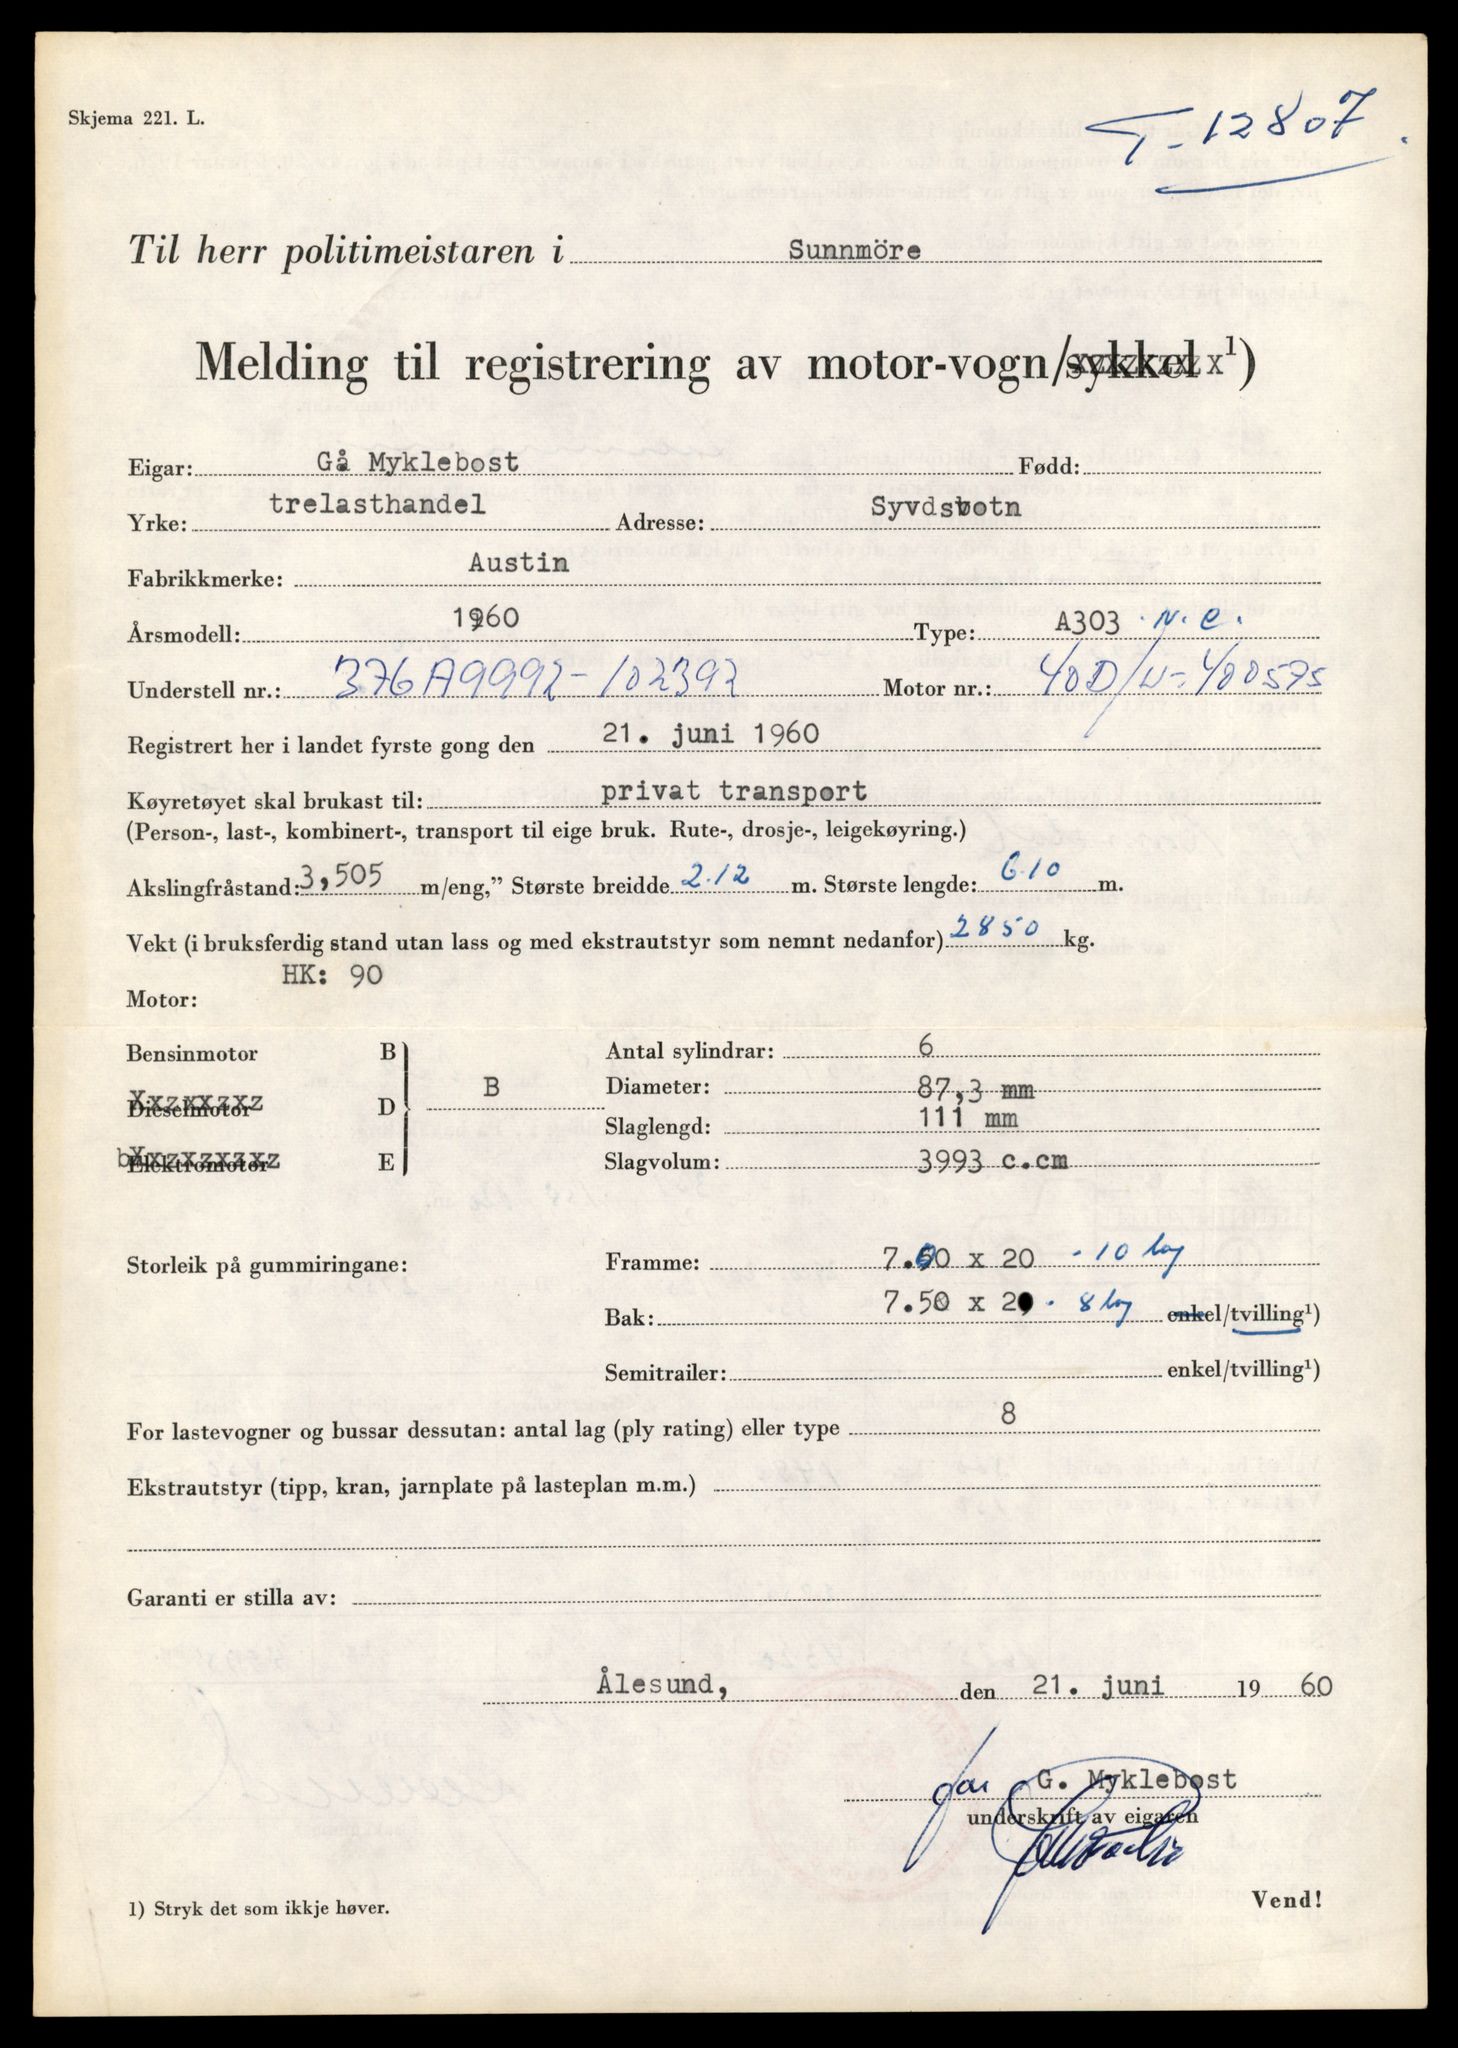 Skjema 221. L.
T-12807
Til herr politimeistaren i Sunnmöre
Melding til registrering av motor-vogn/sykkel x¹)
Eigar: Gå Myklebost Fødd:
Yrke: trelasthandel Adresse: Syvdsbotn
Fabrikkmerke: Austin
Årsmodell: 1960 Type: A303 . N.C.
Understell nr.: 376A9992-102392 Motor nr.: 40D/N-400575
Registrert her i landet fyrste gong den 21. juni 1960
Køyretøyet skal brukast til: privat transport
(Person-, last-, kombinert-, transport til eige bruk. Rute-, drosje-, leigekøyring.)
Akslingfråstand: 3,505 m/eng,” Største breidde 2.12 m. Største lengde: 6.10 m.
Vekt (i bruksferdig stand utan lass og med ekstrautstyr som nemnt nedanfor) 2850 kg.
HK: 90
Motor:
Bensinmotor B Antal sylindrar: 6
B Diameter: 87,3 mm
Dieselmotor D
Slaglengd: 111 mm
Elektromotor E Slagvolum: 3993 c.cm
Storleik på gummiringane: Framme: 7.00 x 20 - 10 lag
Bak: 7.50 x 20 - 8 lag enkel/tvilling¹)
Semitrailer: enkel/tvilling¹)
For lastevogner og bussar dessutan: antal lag (ply rating) eller type 8
Ekstrautstyr (tipp, kran, jarnplate på lasteplan m.m.)
Garanti er stilla av:
Ålesund, den 21. juni 19 60
for G. Myklebost
underskrift av eigaren
1) Stryk det som ikkje høver.
Vend!